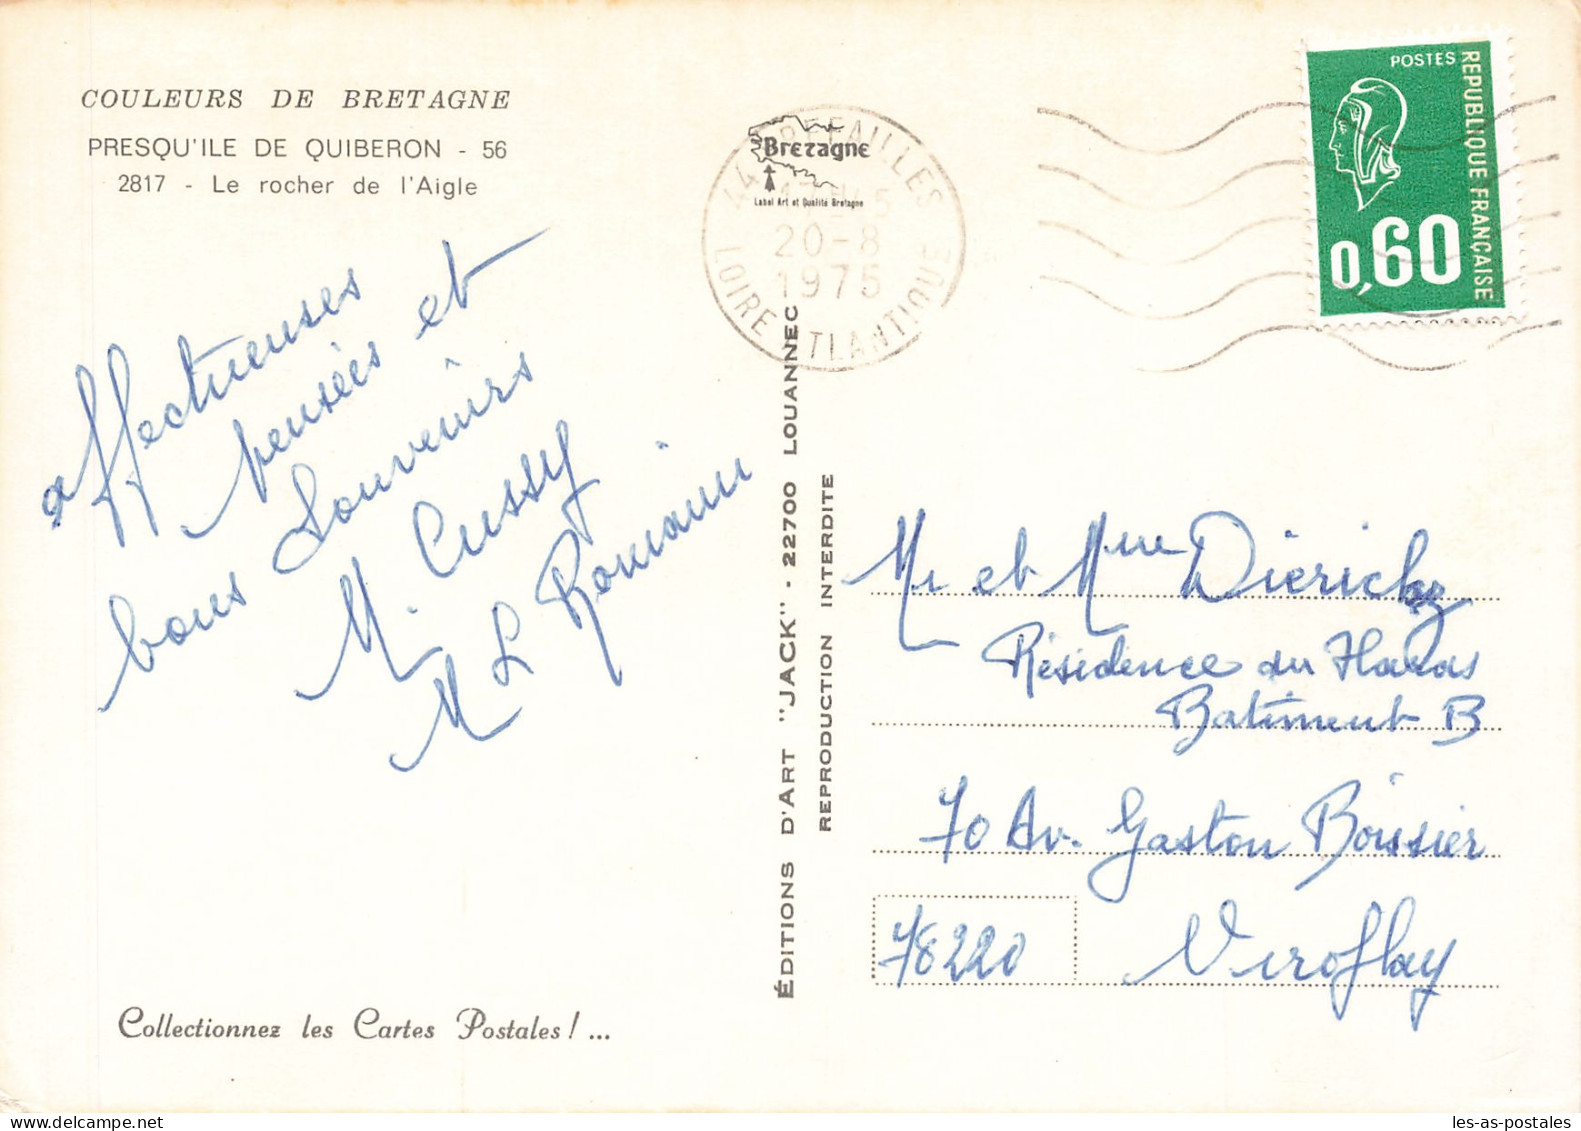 COULEURS DE BRETAGNE
PRESQU'ILE DE QUIBERON - 56
2817 - Le rocher de l'Aigle
affectueuses
pensées et
bons Souvenirs
M. Cussy
M L Romain
Collectionnez les Cartes Postales ! ...
ÉDITIONS D'ART "JACK" - 22700 LOUANNEC
REPRODUCTION INTERDITE
Bretagne
Label Art et Qualité Bretagne
44 PREFAILLES
20-8
1975
LOIRE ATLANTIQUE
POSTES
REPUBLIQUE FRANÇAISE
0,60
Mr et Mme
Résidence du Haras
Batiment B
70 Av. Gaston Boissier
78220 Viroflay
les-as-postales